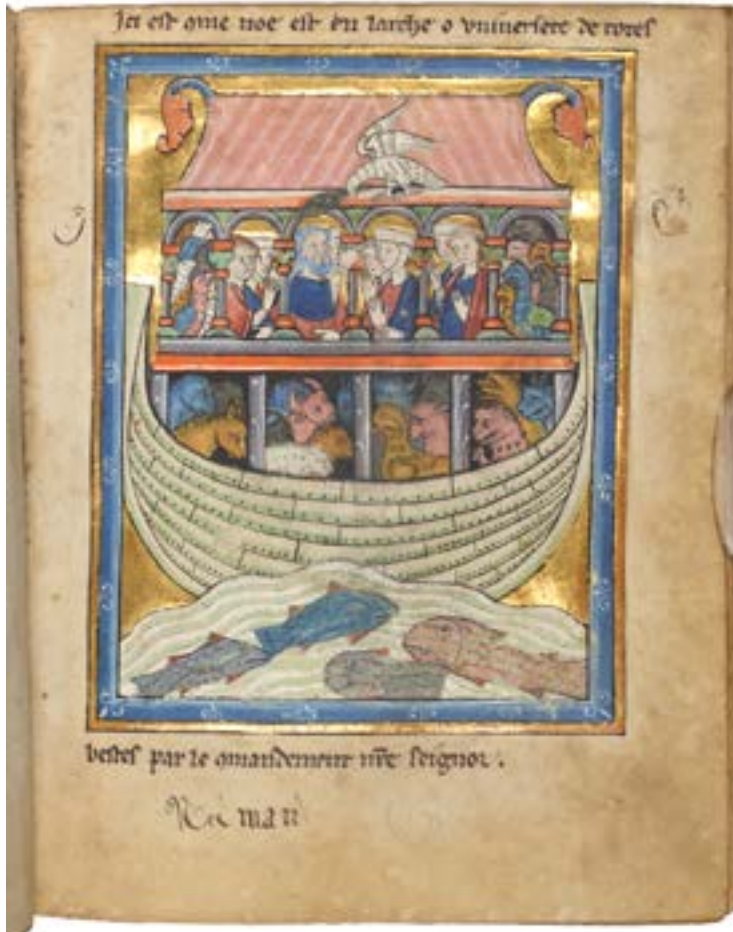 Ici est ome noe est en larche o vniuersete de totes
bestes par le omandement nre seignor .